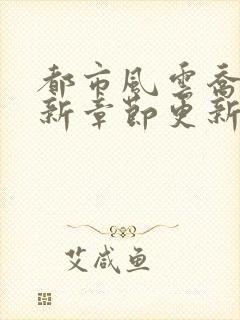 都市風雲喬
新章節更新
艾咸鱼